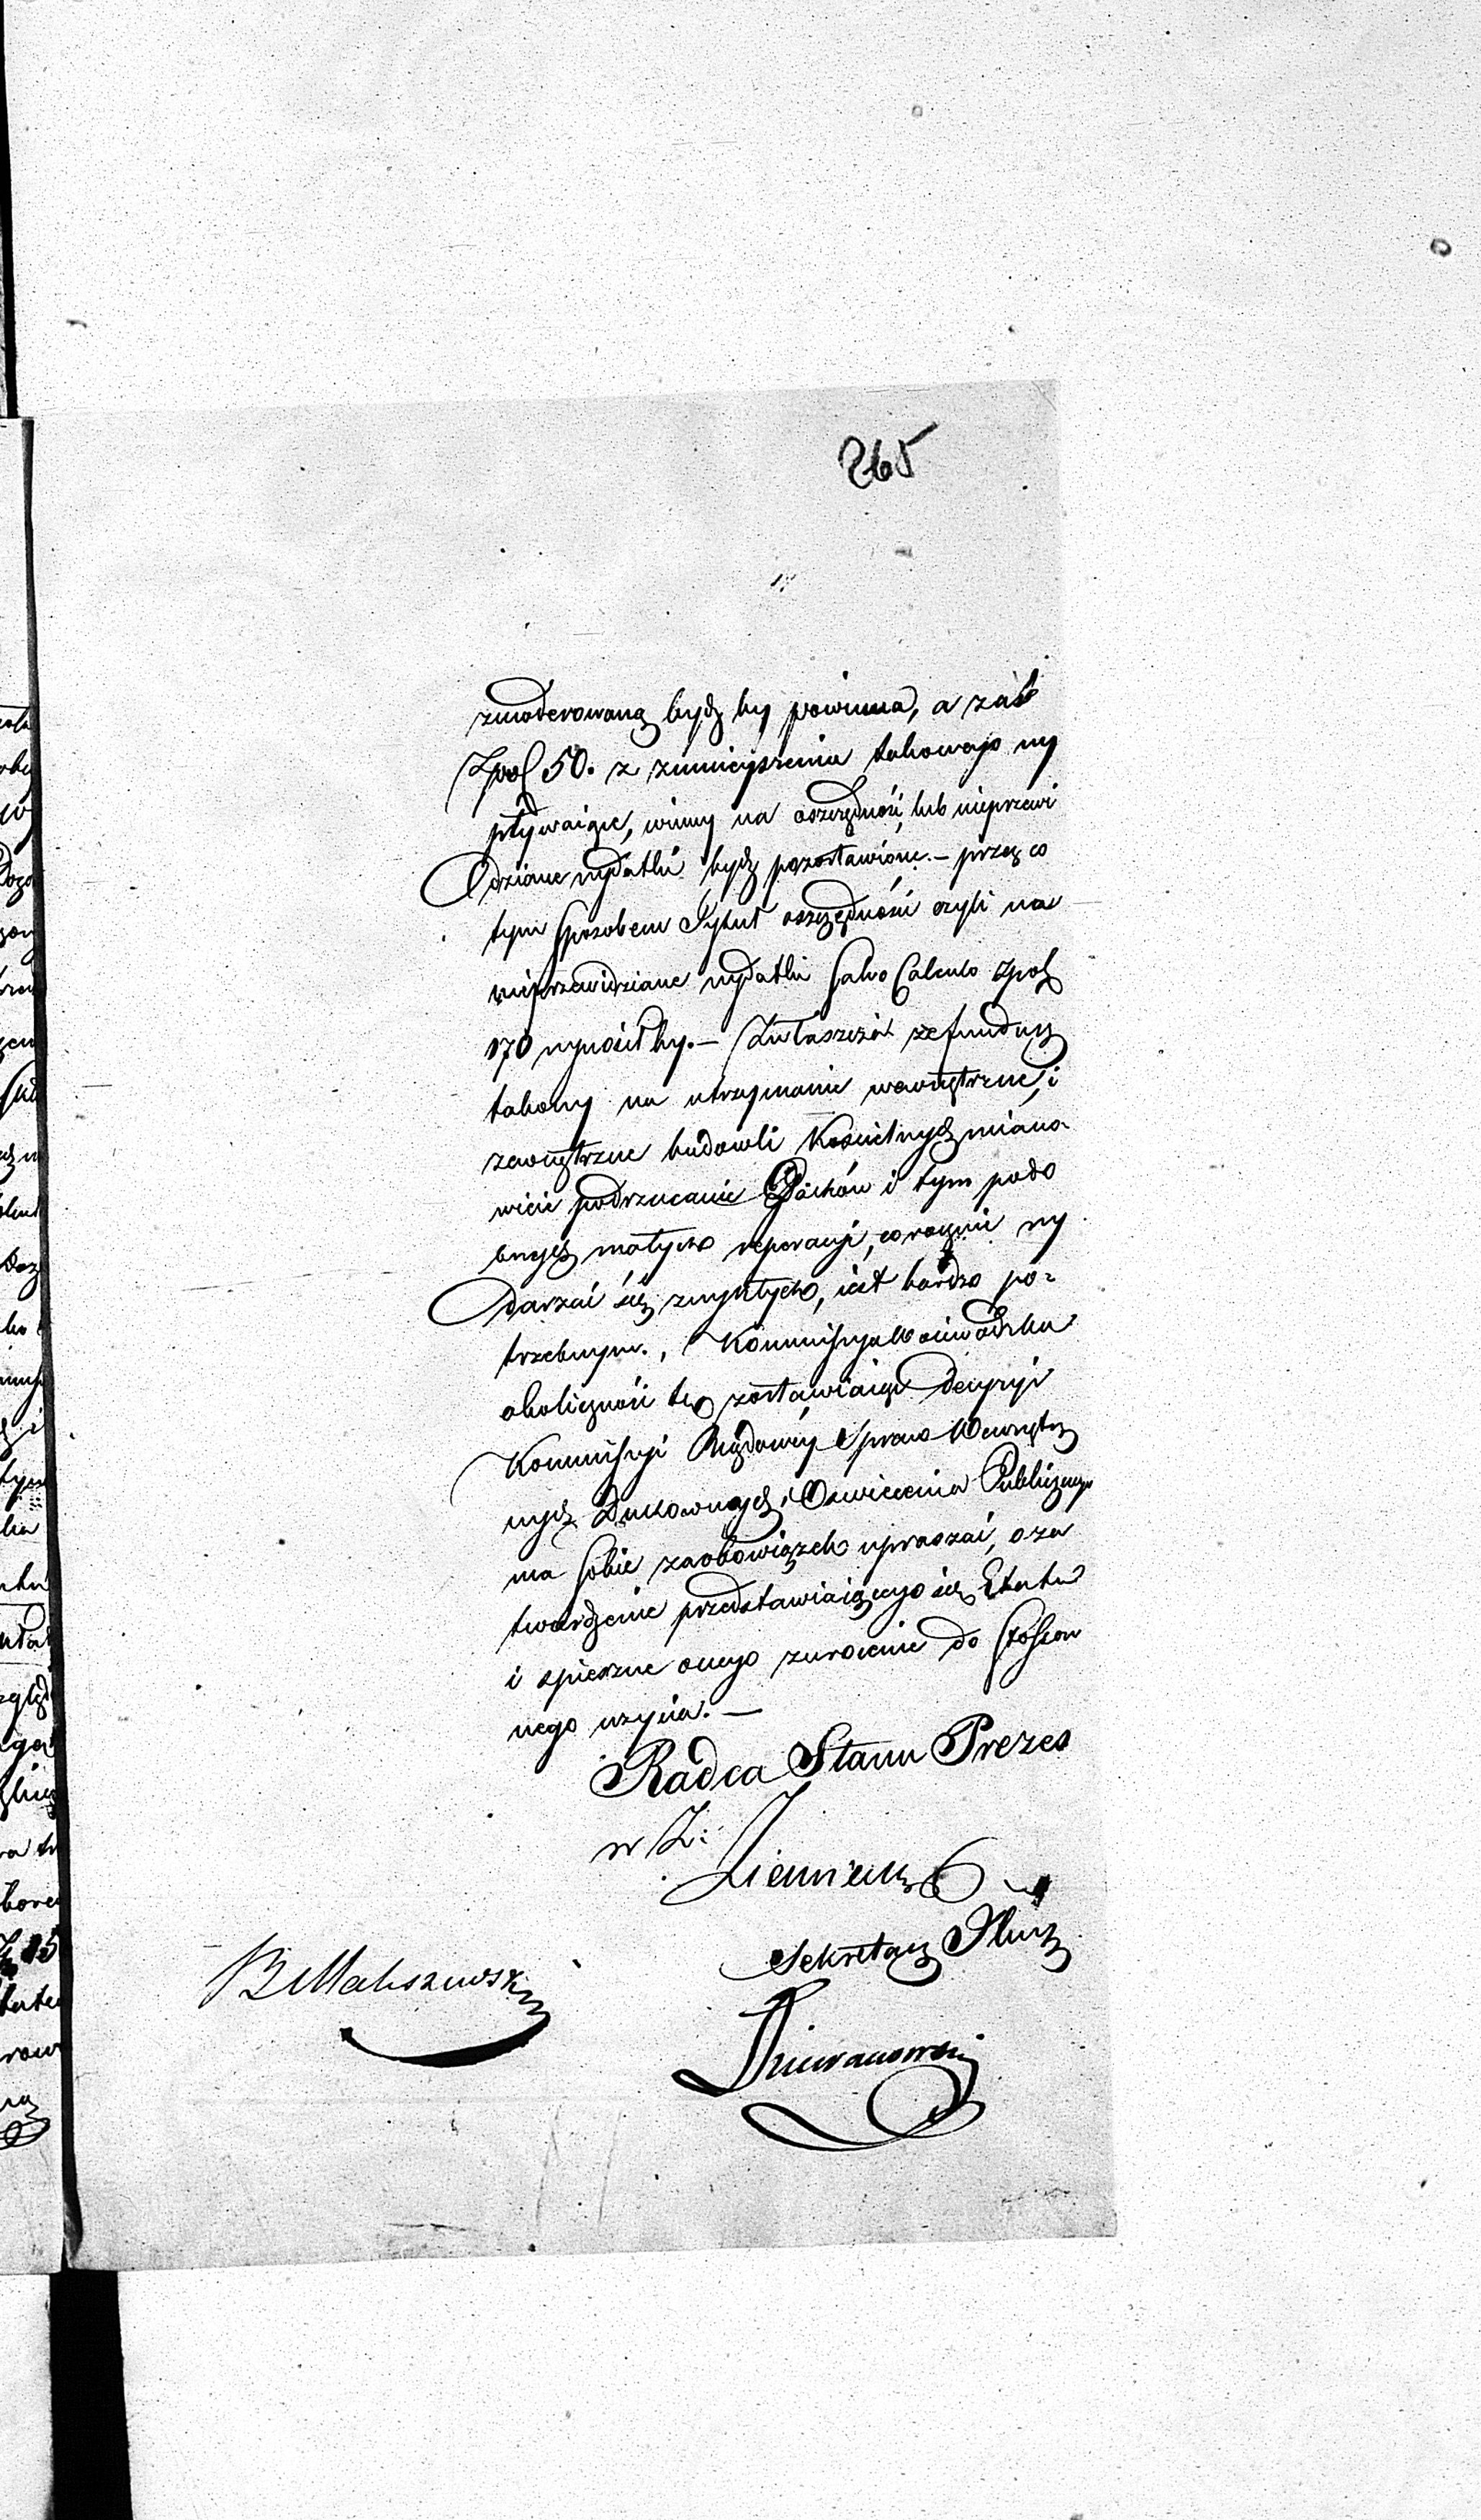 265
zmoderowaną bydź by powinna, a zaś
Zpol 50. z zmnieyszenia takowego wy
pływaiące, winny na oszczędność, lub nieprzewi
dziane wydatki bydź pozostawione. – przez co
tym sposobem Tytuł oszczędności czyli na
nieprzewidziane wydatki Salvo Calculo Zpol
170 wynosił by. – Zwłaszcza ze fundusz
takowy na utrzymanie wewnętrzne, i
zewnętrzne budowli Kościelnych miano
wicie podrzucanie Dachów i tym podo
bnych małych reperacyi, corocznie wy
darzać się zwykłych, iest bardzo po-
trzebnym., Kommissya Woiewódzka
okoliczność tę zostawiaiąc decyzyi
Kommissyi Rządowéy Spraw Wewnętrz
nych Duchownych i Oświecenia Publicznego
ma sobie za obowiązek upraszać, o za
twierdzenie przedstawiaiącego się Etatu
i spieszne onego zwrócenie do stosow
nego użycia. –
Radca Stanu Prezes
w Z:
Ziemiecki
Sekretarz Jlny
B Maliszewski